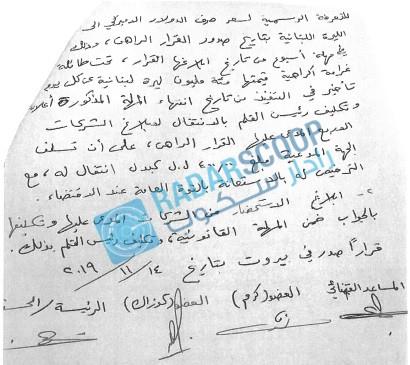 للتعرفة الرسمية لسعر صرف الدولار الاميركي الى
الليرة اللبنانية بتاريخ صدور القرار الراهن، وذلك
في مهلة أسبوع من تاريخ ابلاغها القرار، تحت طائلة
غرامة اكراهية قيمتها مليون ليرة لبنانية عن كل يوم
تأخير في التنفيذ من تاريخ انتهاء المهلة المذكورة أعلاه
وتكليف رئيس القلم بالانتقال لابلاغ الشركات
المدعى عليها القرار الراهن، على أن تسلف
الجهة المدعية مبلغ ل.ل كبدل انتقال له، مع
الترخيص له بالاستعانة بالقوة العامة عند الاقتضاء.
٢- ابلاغ الاستحضار من الشركات المدعى عليها وتكليفها
بالجواب ضمن المهلة القانونية، وتكليف رئيس القلم بذلك.
قراراً صدر في بيروت بتاريخ ١٤/١١/٢٠١٩
المساعد القضائي العضو (كرم) العضو (كوزاك) الرئيسة
RADARSCOOP
رادار سكوب